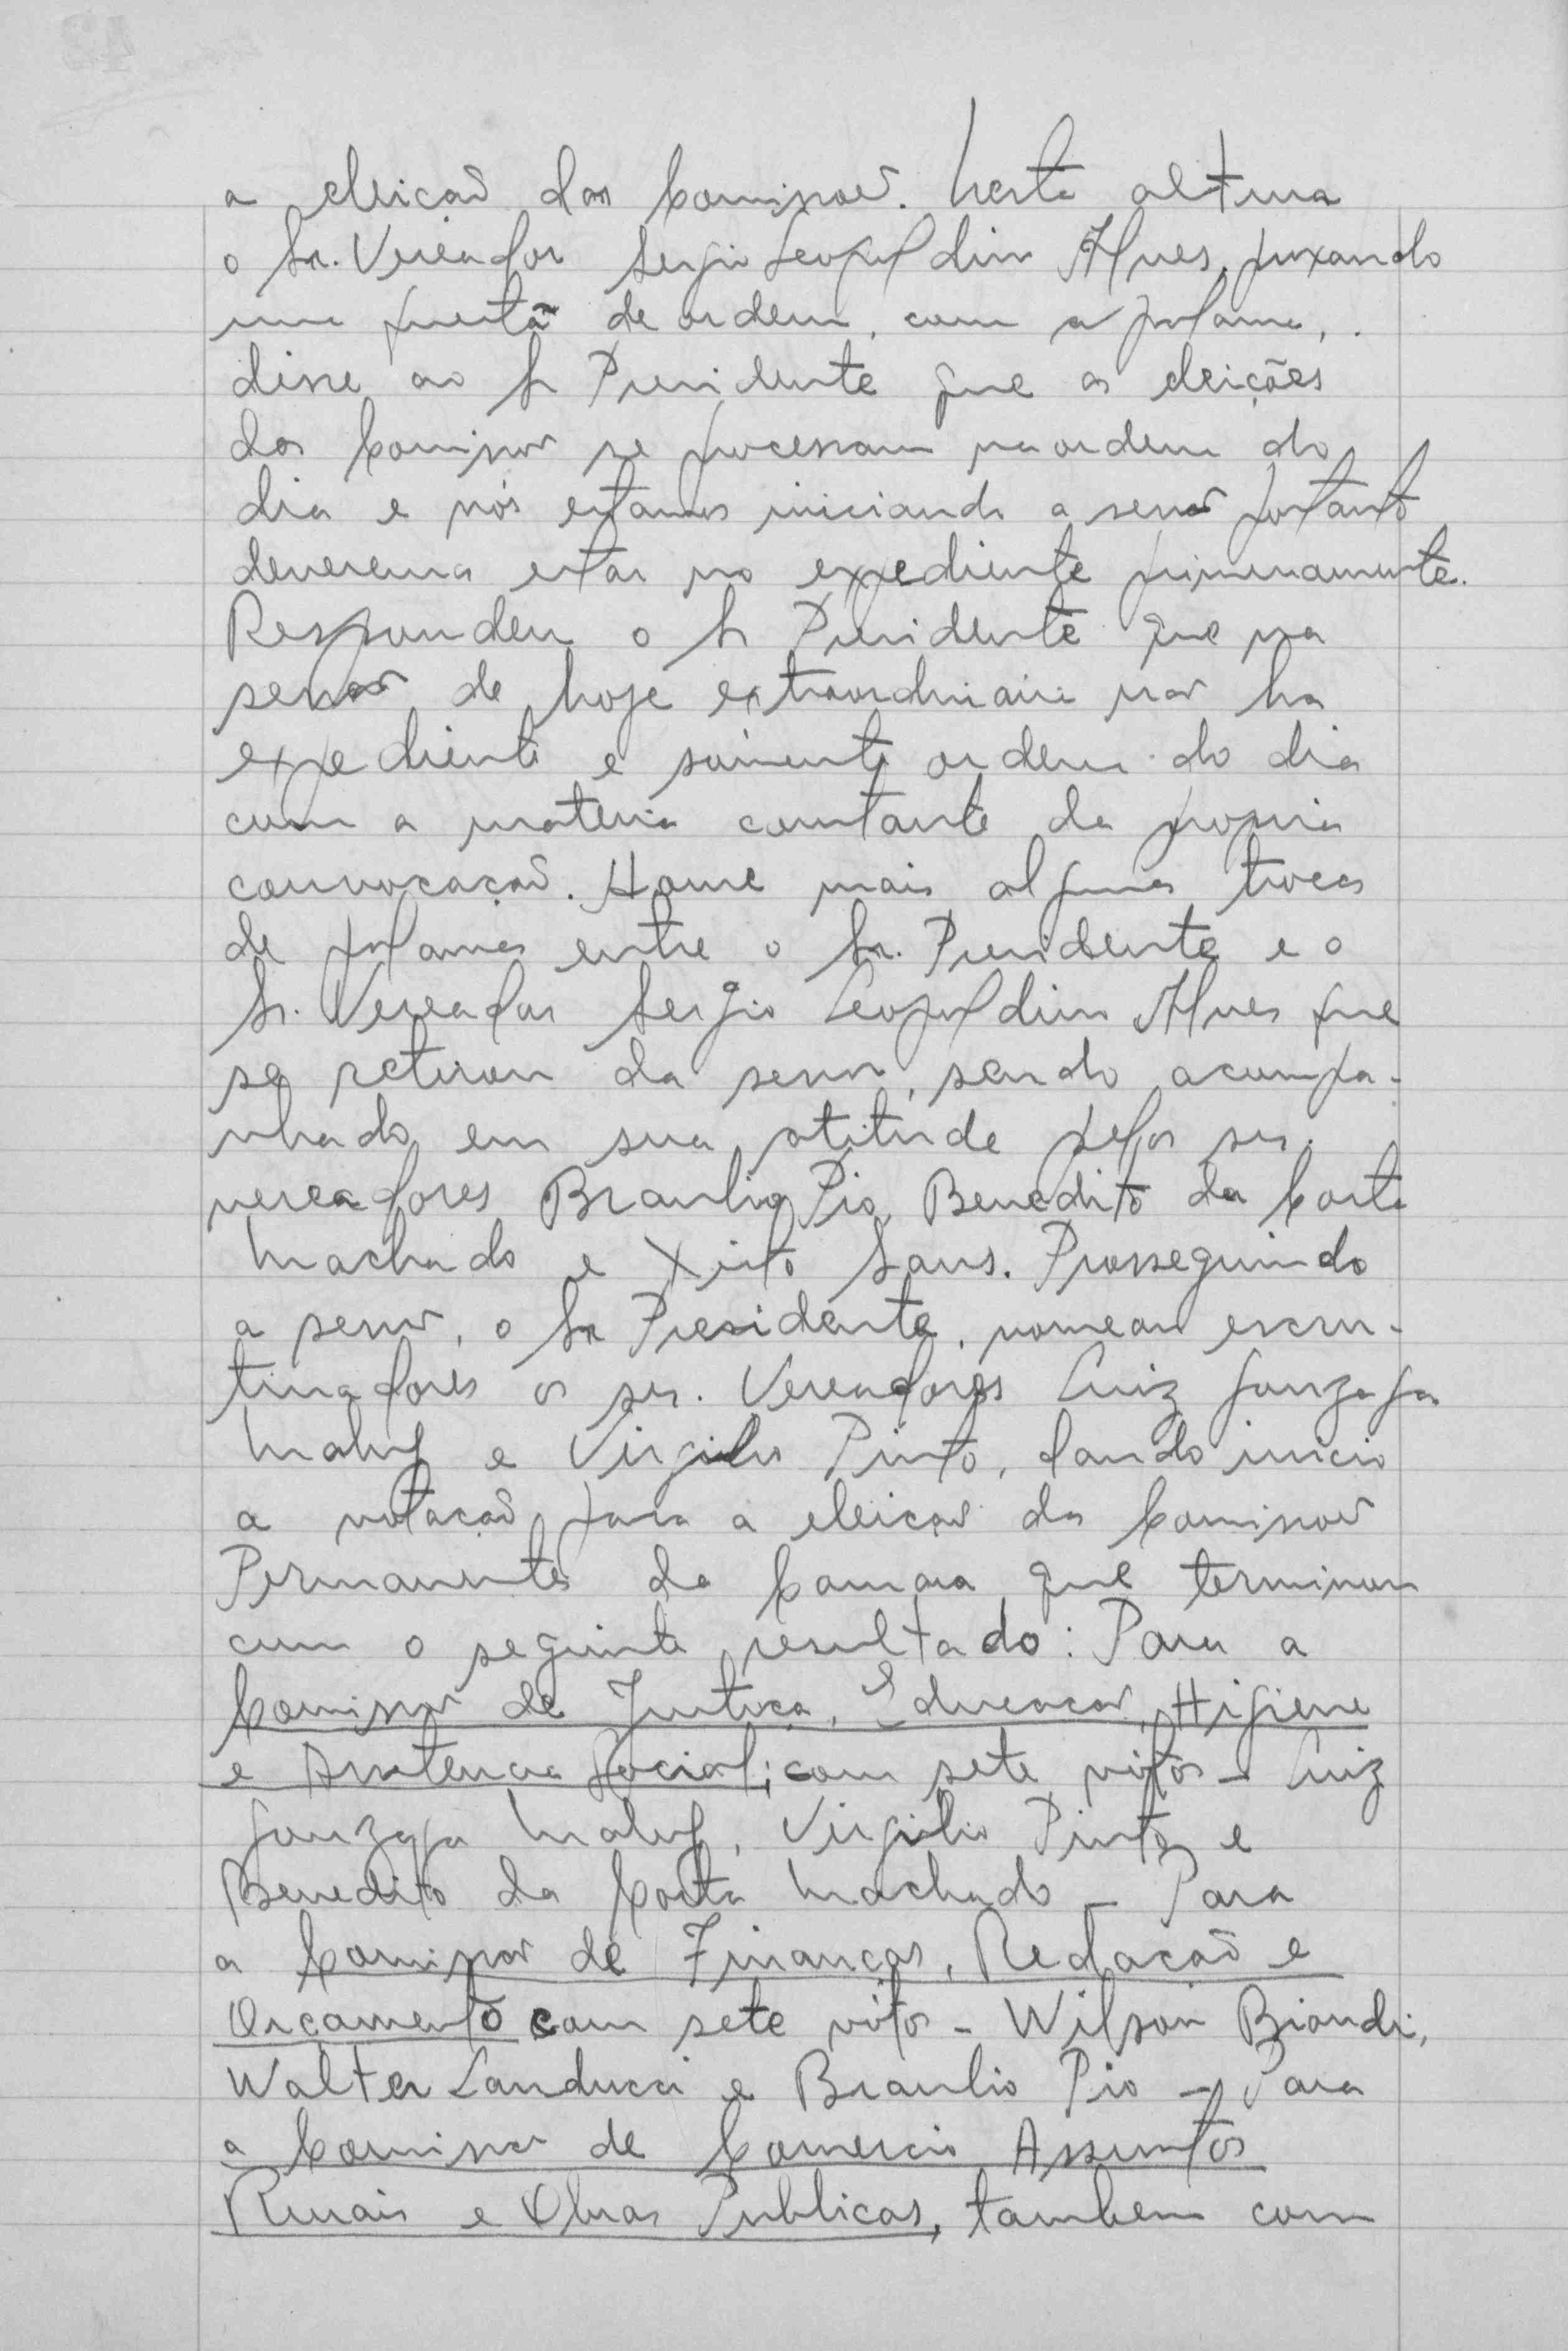 a eleição das Comissões. Nesta altura
o Sr. Vereador Sergio Leopoldino Alves, puxando
uma questão de ordem, com a palavra,
disse ao Sr Presidente que as eleições
das Comissões se processam na ordem do
dia e nós estamos iniciando a sessão portanto
deveremos estar no expediente primeiramente.
Respondeu o Sr Presidente que na
sessão de hoje extraordinaria não ha
expediente e sómente ordem do dia
com a materia constante da propria
convocação. Houve mais algumas trocas
de palavras entre o Sr. Presidente e o
Sr. Vereador Sergio Leopoldino Alves que
se retirou da sessão, sendo acompa-
nhado em sua atitude pelos srs.
vereadores Braulio Pio, Benedito da Costa
Machado e Xisto Sans. Prosseguindo
a sessão, o Sr Presidente, nomeou escru-
tinadores os srs. Vereadores Luiz Gonzaga
Maluf e Virgilio Pinto, dando inicio
a votação para a eleição das Comissões
Permanentes da Camara que terminou
com o seguinte resultado: Para a
Comissão de Justiça, Educação, Higiene
e Assistencia Social; com sete votos - Luiz
Gonzaga Maluf, Virgilio Pinto e
Benedito da Costa Machado - Para
a Comissão de Finanças, Redação e
Orçamento com sete votos - Wilson Biondi,
Walter Landucci e Braulio Pio - Para
a Comissão de Comercio Assuntos
Rurais e Obras Publicas, tambem com